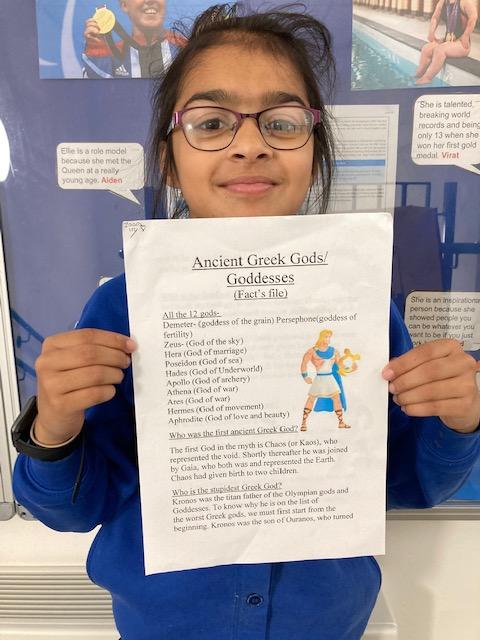 Ellie is a role model
because she met the
Queen at a really
young age. Aiden
"She is talented,
breaking world
records and being
only 13 when she
won her first gold
medal. Virat
She is an inspirational
person because she
showed people you
can be whatever you
want to be if you just
Ancient Greek Gods/
Goddesses
(Fact's file)
All the 12 gods-
Demeter- (goddess of the grain) Persephone(goddess of
fertility)
Zeus- (God of the sky)
Hera (God of marriage)
Poseidon (God of sea)
Hades (God of Underworld)
Apollo (God of archery)
Athena (God of war)
Ares (God of war)
Hermes (God of movement)
Aphrodite (God of love and beauty)
Who was the first ancient Greek God?
The first God in the myth is Chaos (or Kaos), who
represented the void. Shortly thereafter he was joined
by Gaia, who both was and represented the Earth.
Chaos had given birth to two children.
Who is the stupidest Greek God?
Kronos was the titan father of the Olympian gods and
Goddesses. To know why he is on the list of
the worst Greek gods, we must first start from the
beginning. Kronos was the son of Ouranos, who turned